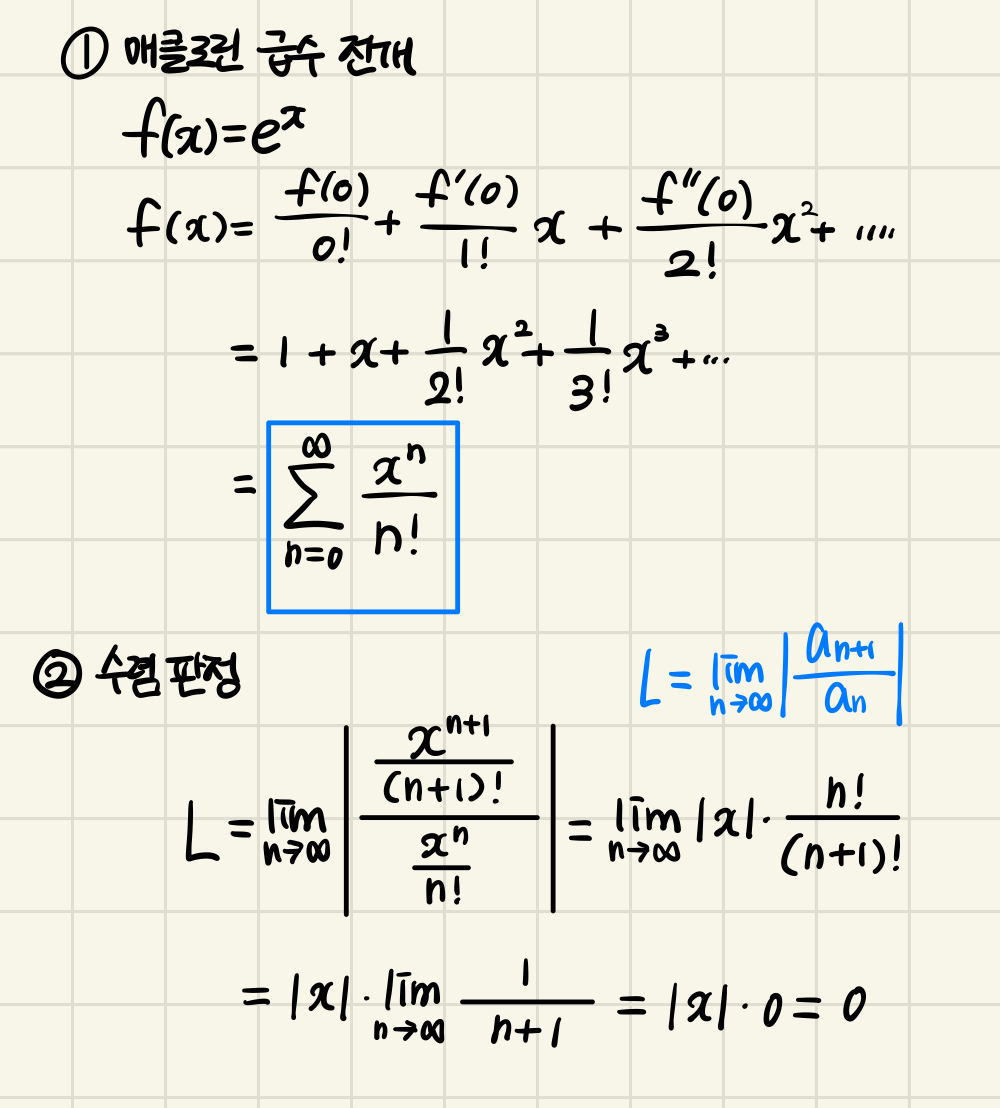 ① 매클로린 급수 전개
f(x)=eˣ
f(x)= f(0)/0! + f′(0)/1! x + f″(0)/2! x² + ....
= 1 + x + 1/2! x² + 1/3! x³ + ...
= ∑_{n=0}^{∞} xⁿ/n!
② 수렴 판정
L = lim_{n→∞} |a_{n+1}/a_n|
L = lim_{n→∞} |(x^{n+1}/(n+1)!)/(xⁿ/n!)| = lim_{n→∞} |x|· n!/(n+1)!
= |x| · lim_{n→∞} 1/(n+1) = |x| · 0 = 0